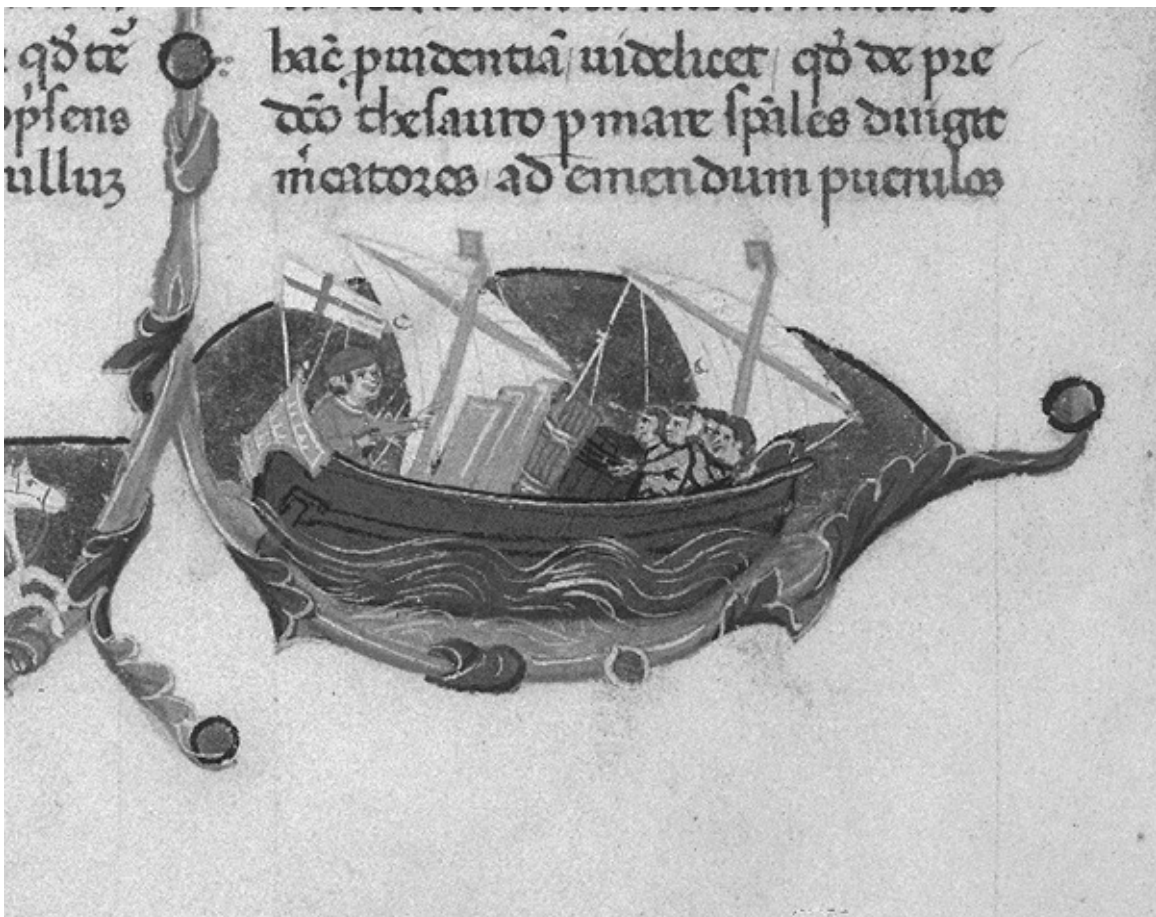 qđ tē
p̄sens
ulluz
hac̄ prudentiā uidelicet qđ de pre
dc̄o thesauro ꝑ mare sp̄ales dirigit
m̓catores ad emendum puerulos